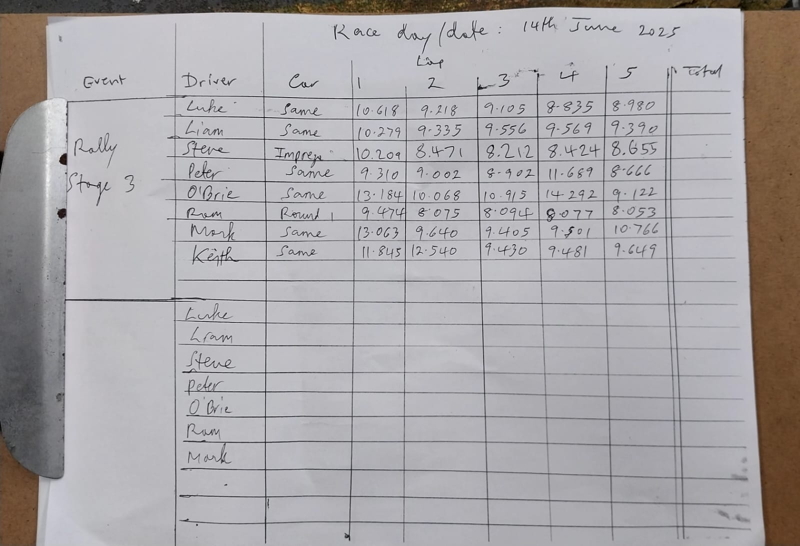 Race day/date: 14th June 2025
Lap
Event Driver Car 1 2 3 4 5 Total
Rally Stage 3
Luke Same 10.618 9.218 9.105 8.835 8.980
Liam Same 10.279 9.335 9.556 9.569 9.390
Steve 10.209 8.471 8.212 8.424 8.655
Peter Same 9.310 9.002 8.902 11.689 8.666
O'Brie Same 13.184 10.068 10.915 14.292 9.122
Ram Round 1 9.474 8.075 8.094 8.077 8.053
Mark Same 13.063 9.640 9.405 9.501 10.766
Keith Same 11.845 12.540 9.430 9.481 9.649
Luke
Liam
Steve
Peter
O'Brie
Ram
Mark